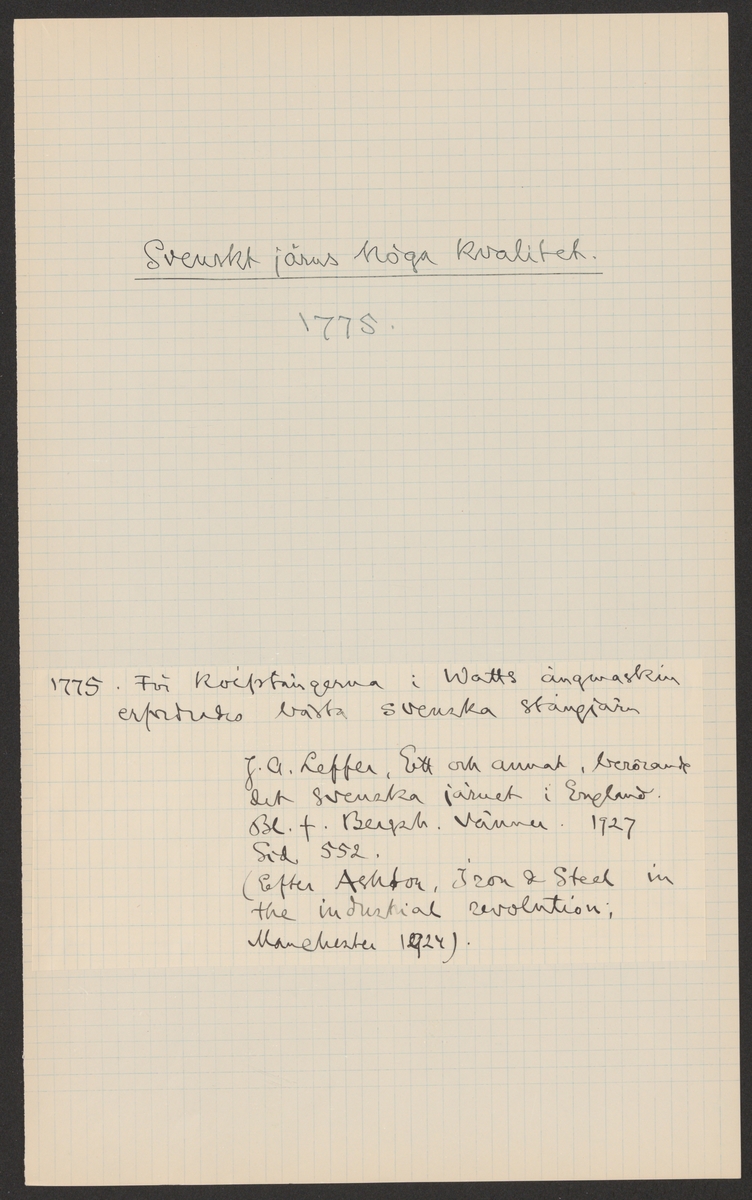 Svenskt järns höga kvalitet.
1775.
1775. För kolfstängerna i Watts ångmaskin
erfordrades bästa svenska stångjärn
J. A. Leffler, Ett och annat, berörande
det svenska järnet i England.
Bl. f. Bergsh. Vänner. 1927
Sid. 552.
(Efter Ashton, Iron & Steel in
the industrial revolution;
Manchester 1924).